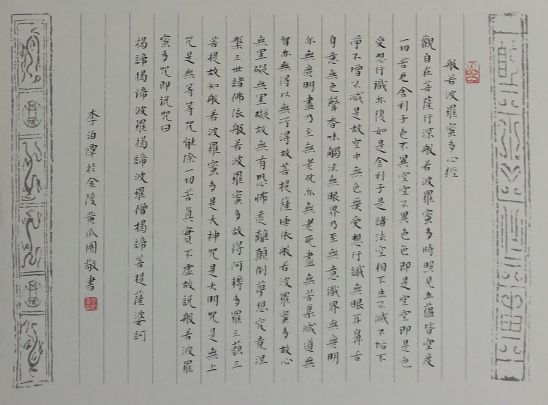 般若波羅蜜多心經
觀自在菩薩行深般若波羅蜜多時照見五蘊皆空度
一切苦厄舍利子色不異空空不異色色即是空空即是色
受想行識亦復如是舍利子是諸法空相不生不滅不垢不
淨不增不減是故空中無色無受想行識無眼耳鼻舌
身意無色聲香味觸法無眼界乃至無意識界無無明
亦無無明盡乃至無老死亦無老死盡無苦集滅道無
智亦無得以無所得故菩提薩埵依般若波羅蜜多故心
無罣礙無罣礙故無有恐怖遠離顛倒夢想究竟涅
槃三世諸佛依般若波羅蜜多故得阿耨多羅三藐三
菩提故知般若波羅蜜多是大神咒是大明咒是無上
咒是無等等咒能除一切苦真實不虛故說般若波羅
蜜多咒即說咒曰
揭諦揭諦波羅揭諦波羅僧揭諦菩提薩婆訶
李泊潭於金陵黃瓜園敬書